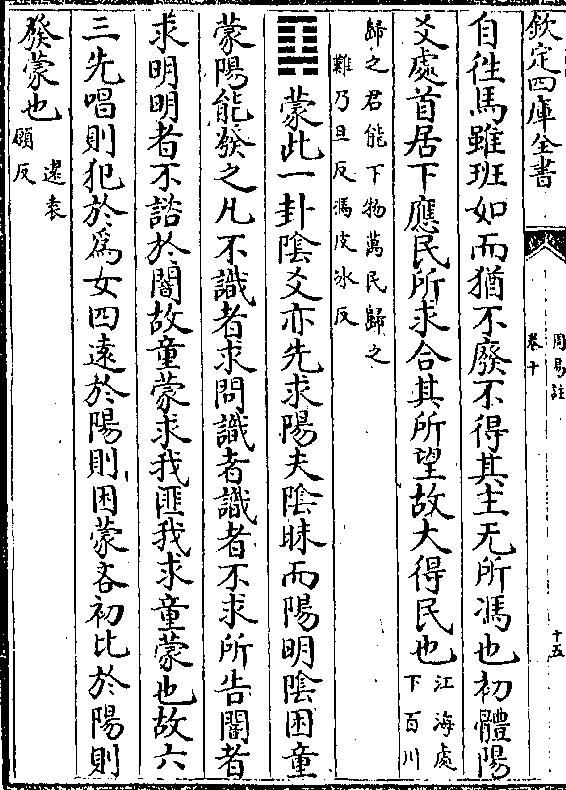 欽定四庫全書
周易註
卷十
十五
自徃馬雖班如而猶不廢不得其主无所馮也初體陽
爻處首居下應民所求合其所望故大得民也江海處下百川
歸之君能下物萬民歸之
難乃旦反馮皮冰反
䷃蒙此一卦陰爻亦先求陽夫陰昧而陽明陰困童
蒙陽能發之凡不識者求問識者識者不求所告闇者
求明明者不諮於闇故童蒙求我匪我求童蒙也故六
三先唱則犯於為女四遠於陽則困蒙吝初比於陽則
發蒙也遠袁願反